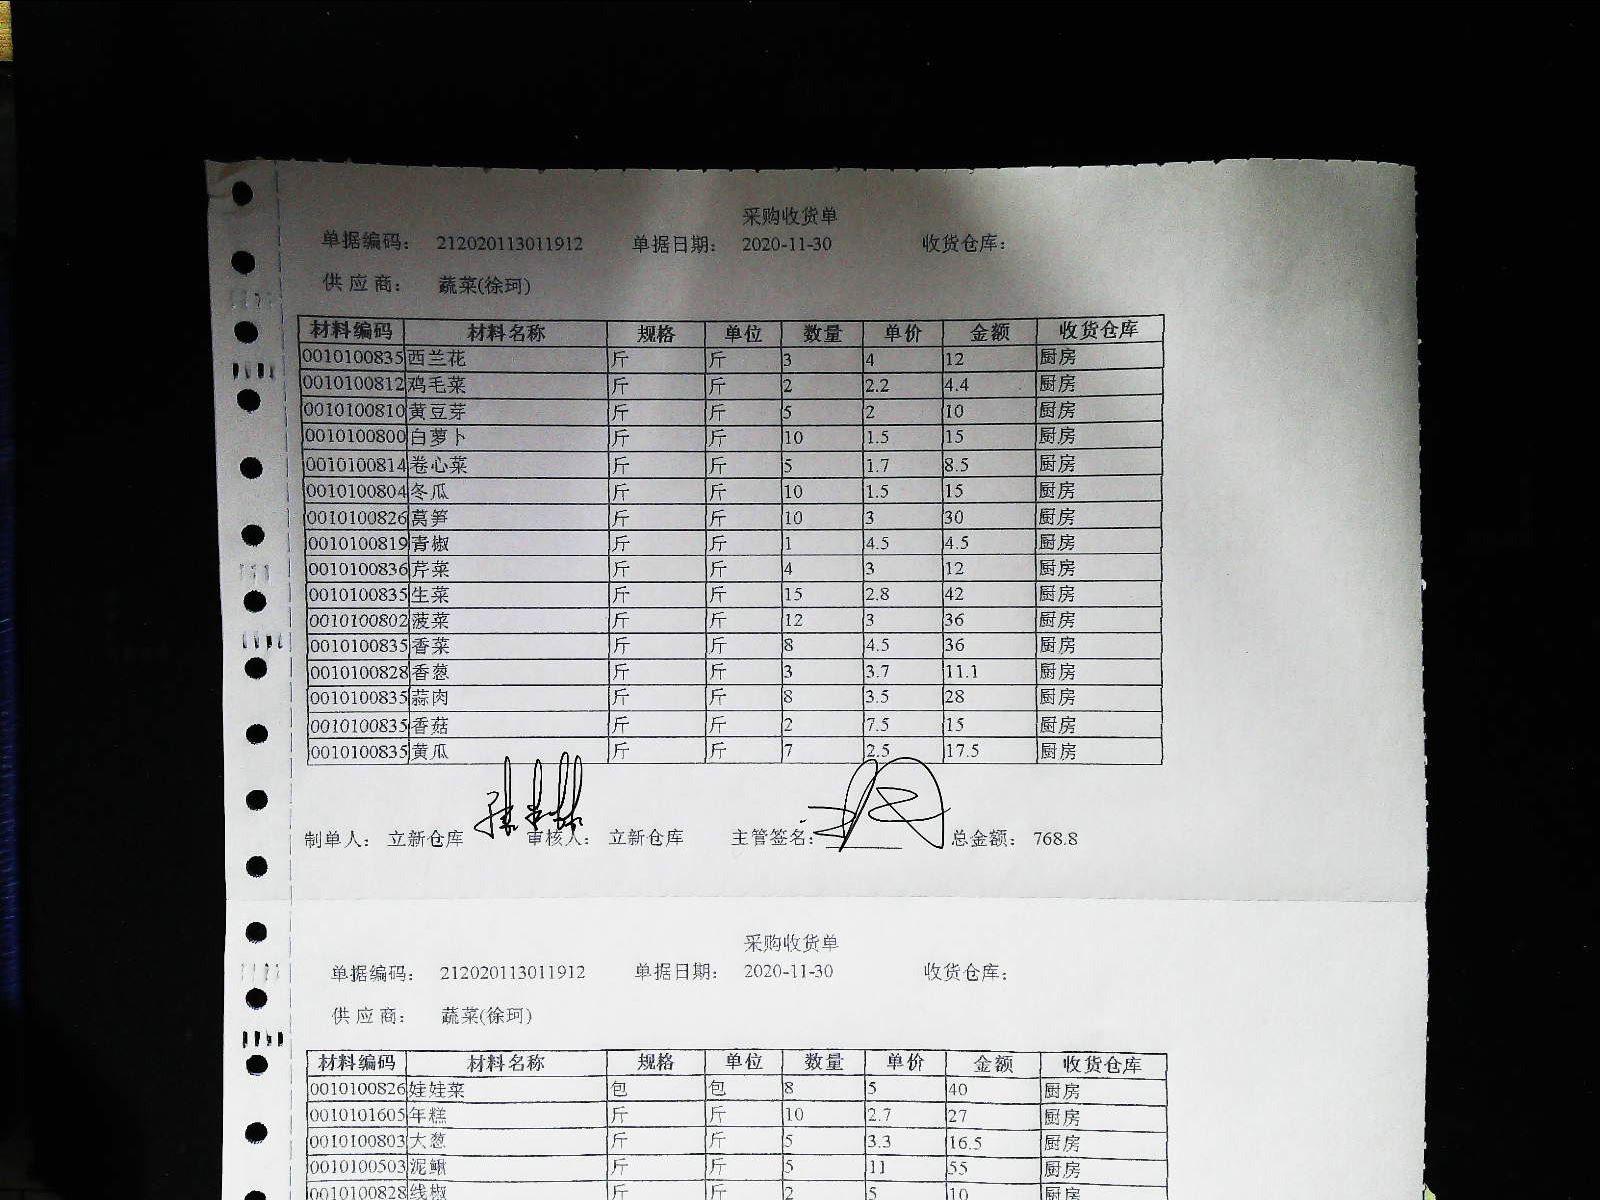 采购收货单
单据编码: 212020113011912 单据日期: 2020-11-30 收货仓库:
供 应 商: 蔬菜(徐珂)
材料编码 材料名称 规格 单位 数量 单价 金额 收货仓库
0010100835 西兰花 斤 斤 3 4 12 厨房
0010100812 鸡毛菜 斤 斤 2 2.2 4.4 厨房
0010100810 黄豆芽 斤 斤 5 2 10 厨房
0010100800 白萝卜 斤 斤 10 1.5 15 厨房
0010100814 卷心菜 斤 斤 5 1.7 8.5 厨房
0010100804 冬瓜 斤 斤 10 1.5 15 厨房
0010100826 莴笋 斤 斤 10 3 30 厨房
0010100819 青椒 斤 斤 1 4.5 4.5 厨房
0010100836 芹菜 斤 斤 4 3 12 厨房
0010100835 生菜 斤 斤 15 2.8 42 厨房
0010100802 菠菜 斤 斤 12 3 36 厨房
0010100835 香菜 斤 斤 8 4.5 36 厨房
0010100828 香葱 斤 斤 3 3.7 11.1 厨房
0010100835 蒜肉 斤 斤 8 3.5 28 厨房
0010100835 香菇 斤 斤 2 7.5 15 厨房
0010100835 黄瓜 斤 斤 7 2.5 17.5 厨房
制单人: 立新仓库 审核人: 立新仓库 主管签名: 总金额: 768.8
采购收货单
单据编码: 212020113011912 单据日期: 2020-11-30 收货仓库:
供 应 商: 蔬菜(徐珂)
材料编码 材料名称 规格 单位 数量 单价 金额 收货仓库
0010100826 娃娃菜 包 包 8 5 40 厨房
0010101605 年糕 斤 斤 10 2.7 27 厨房
0010100803 大葱 斤 斤 5 3.3 16.5 厨房
0010100503 泥鳅 斤 斤 5 11 55 厨房
0010100828 线椒 斤 斤 2 5 10 厨房